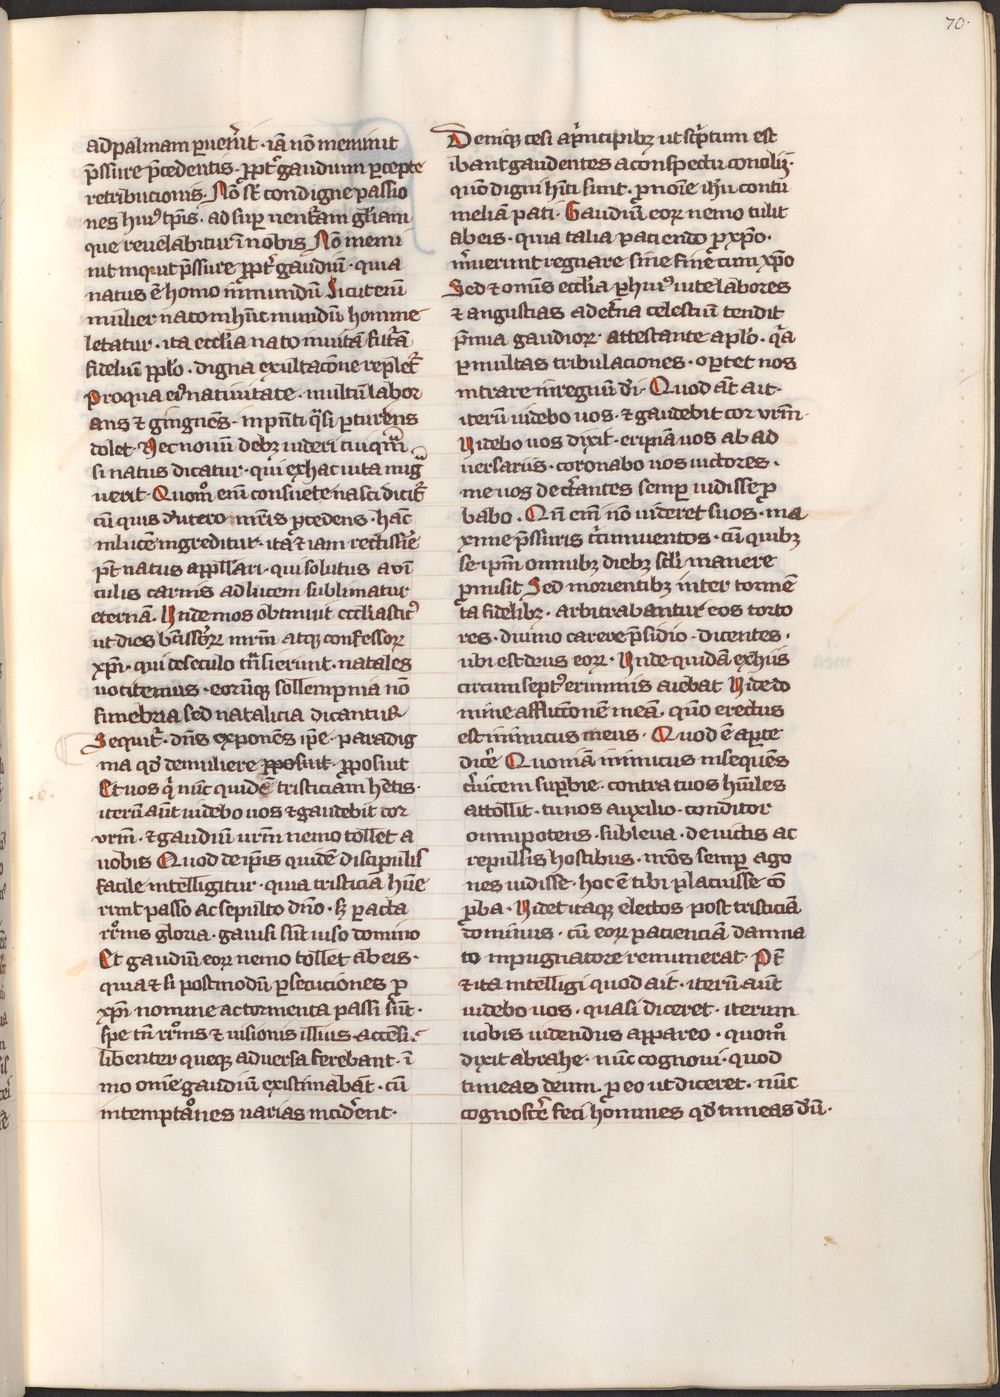 70.
ad palmam ꝑuen̄it · iā nō meminit
p̄ssure p̄cedentis · ꝓpt᷑ gaudium ꝑcepte
retribucionis · Nō st̄ condigne passio
nes huiꝰ tp̄is · ad suꝑ uentᷓam gl̄iam
que reuelabitur ī nobis Nō memi
nit inquit p̄ssure ꝓpt᷑ gaudiū · quia
natus ē homo in mundū Sicut eni᷑
mulier nato in hūc mundū homine
letatur · ita eccl̄ia nato in uitā futᷓā
fideliū pp̄lo · digna exultacōne repleť
Pro qua eiꝰ natiuitate · multū labor
ans ⁊ gingnēs · in p̄nti qᷓsi ꝑturiens
dolet · Nec nouū debꝫ uideri cuiqᷓm
si natus dicatur · qui ex hac uita mig
uerit · Quomͦ eni᷑ consuete nasci diciť
cū quis d̓ utero mr̄is ꝓcedens · hāc
in lucē ingreditur · ita ⁊ iam rectissīe
pt̄ natus appll̄ari · qui solutus a vī
culis carnis ad lucem sublimatur
eternā · Unde mos obtinuit eccl̄iasticꝰ
ut dies b̄tissoꝝ mr̄m atqꝫ confessoꝝ
xp̄i · qui de seculo tᷓnsierunt · natales
uocitemus · eorūqꝫ sollempnia nō
funebria sed natalicia dicantur
Sequiť · dn̄s exponēs ip̄e · paradig
ma qd̓ de muliere ꝓposuit · ꝓposuit
Et uos gͦ nūc quidē tristiciam hētis ·
iterū aūt uidebo uos ⁊ gaudebit cor
vrm̄ · ⁊ gaudiū urm̄ nemo tollet a
uobis Quod de ip̄is quidē discipulis
facile intelligitur · quia tristiciā hūe
runt passo ac sepulto dn̄o · sꝫ ꝑacta
rr̄onis gloria · gauisi sūt uiso domino
Et gaudiū eoꝝ nemo tollet ab eis ·
quia ⁊ si postmodū ꝑsecuciones ꝓ
xp̄i nomine ac tormenta passi sūt ·
spe tn̄ rr̄onis ⁊ uisionis illius · accensi ·
libenter queqꝫ aduersa ferebant · ī
mo om̄e gaudiū existimabāt · cū
in temptacōnes uarias incid̓ent ·
Deniqꝫ cesi a p̓ncipibꝫ ut scͥptum est
ibant gaudentes a conspectu concilij ·
quō digni hīti sunt · ꝓ noīe ih̄u contu
meliā pati · Gaudiū eoꝝ nemo tulit
ab eis · quia talia paciendo ꝓ xp̄o ·
m̓uerunt regnare sine fine cum xp̄o
Sed ⁊ omīs eccl̄ia ꝑ huiꝰ uite labores
⁊ angustias ad et̓na celestiū tendit
p̄mia gaudioꝝ · attestante apl̄o · qᷓa
ꝑ multas tribulaciones · oꝑtet nos
intrare in regnū di̓ · Quod aūt ait ·
iterū uidebo uos · ⁊ gaudebit cor vrm̄ ·
Uidebo uos dixit · eripiā uos ab ad
uersariis · coronabo uos uictores ·
me uos d̓ c̓tantes semꝑ uidisse ꝓ
babo · Qn̄ eni᷑ nō uideret suos · ma
xime p̄ssuris cͦinuentos · cū quibꝫ
se ip̄m omnibꝫ diebꝫ scl̄i manere
ꝓmisit Sed morientibꝫ inter tormē
ta fidelibꝫ · arbitrabantur eos torto
res · diuino carere p̄sidio · dicentes ·
ubi est deus eoꝝ · Unde quidā ex hiis
circumseptꝰ erumnis aiebat Uide do
mine afflictionē meā · quō erectus
est inimicus meus · Quod ē aꝑte
dic̓e Quoniā inimicus insequēs
c̓uicem suꝑbie · contra tuos hūiles
attollit · tu nos auxilio · conditor
omnipotens · subleua · deuictis ac
repulsis hostibus · nrōs semꝑ ago
nes uidisse · hoc ē tibi ꝑlacuisse cō
ꝓba · Uidet itaqꝫ electos post tristiciā
dominus · cū eoꝝ pacienciā dampna
to inpugnatore remunerat · Pt̄
⁊ ita intelligi quod ait · iterū aūt
uidebo uos · quasi diceret · iterum
uobis uidendus appareo · quomͦ
dixit abrahe · nūc cognoui · quod
timeas deum · ꝑ eo ut diceret · nūc
cognosc̓e feci hͦomines qd̓ timeas d̓ū ·